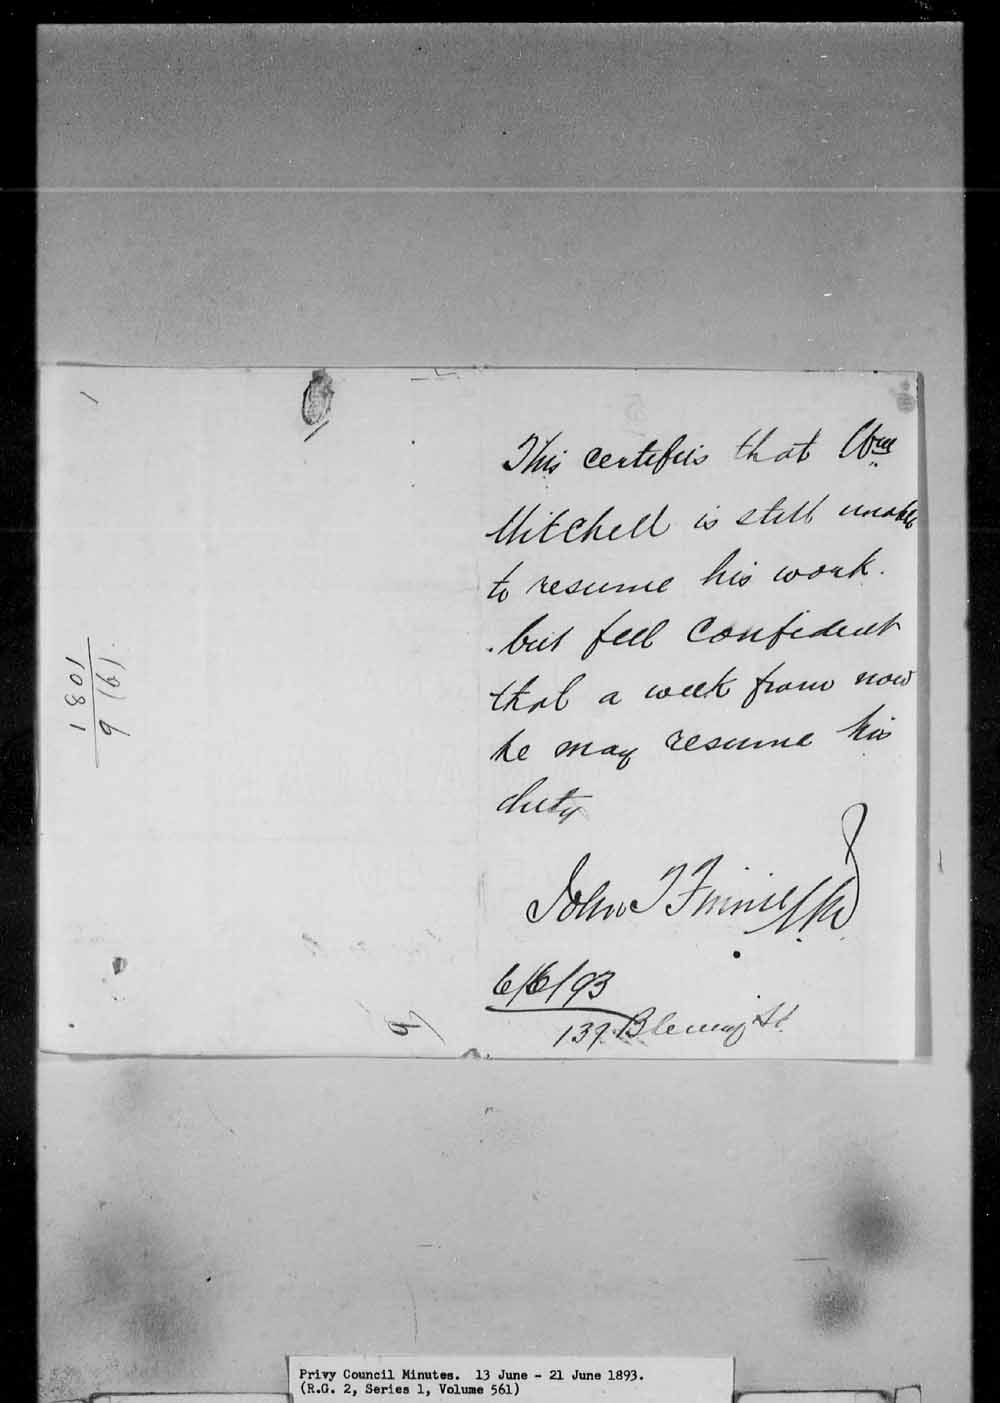 This certifies that Wm
Mitchell is still unable
to resume his work.
but feel Confident
that a week from now
he may resume his
duty
John T Finnie MD
6/6/93
139 Bleury St.
1081
(9) 6
Privy Council Minutes. 13 June - 21 June 1893.
(R.G. 2, Series 1, Volume 561)